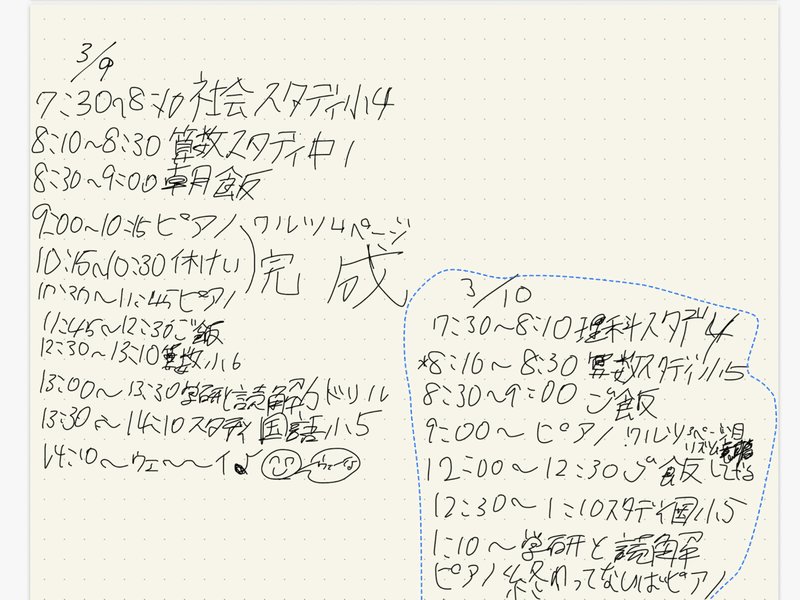 3/9
7:30~8:10 社会スタディ小4
8:10~8:30 算数スタディ中1
8:30~9:00 朝飯
9:00~10:15 ピアノ ワルツ4ページ
10:15~10:30 休けい
完成
10:30~11:45 ピアノ
11:45~12:30 ご飯
12:30~13:10 算数小6
13:00~13:30 学研と読解力ドリル
13:30~14:10 スタディ国語小5
14:10~ウェ~~イ♪
3/10
7:30~8:10 理科スタデ4
*8:10~8:30 算数スタディ小5
8:30~9:00 ご飯
9:00~ ピアノ ワルツ3ページ目
リズム
してる
12:00~12:30 ご飯
12:30~1:10 スタディ国小5
1:10~学研と読解
ピアノ終わってないはピアノ